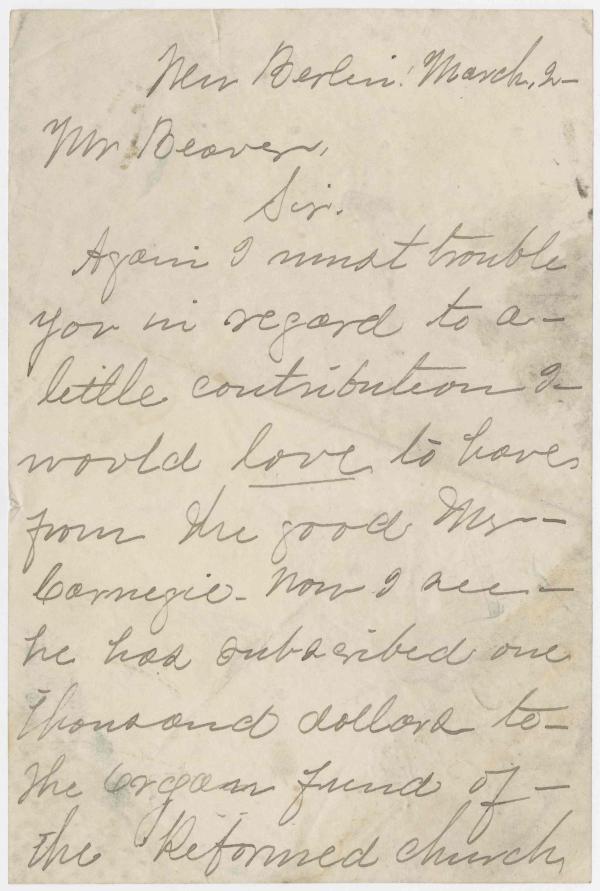 New Berlin. March, 2-
Mr Beaver,
Sir.
Again I must trouble
you in regard to a-
little contribution I-
would love to have
from the good Mr-
Carnegie- Now I see-
he has subscribed one
thousand dollars to-
the Organ fund of-
the Reformed church,